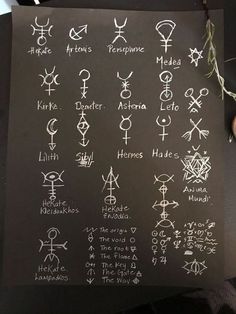 HeKate Artemis Persephone
Medea
Kirke. Demeter. Asteria Leto
Lilith Sibyl Hermes Hades
Anima Mundi
HeKate Kleidoukhos
HeKate Enodia.
HeKate Lampados
The origin
The void
The root
The Flame
The Key
The Gate
The Way